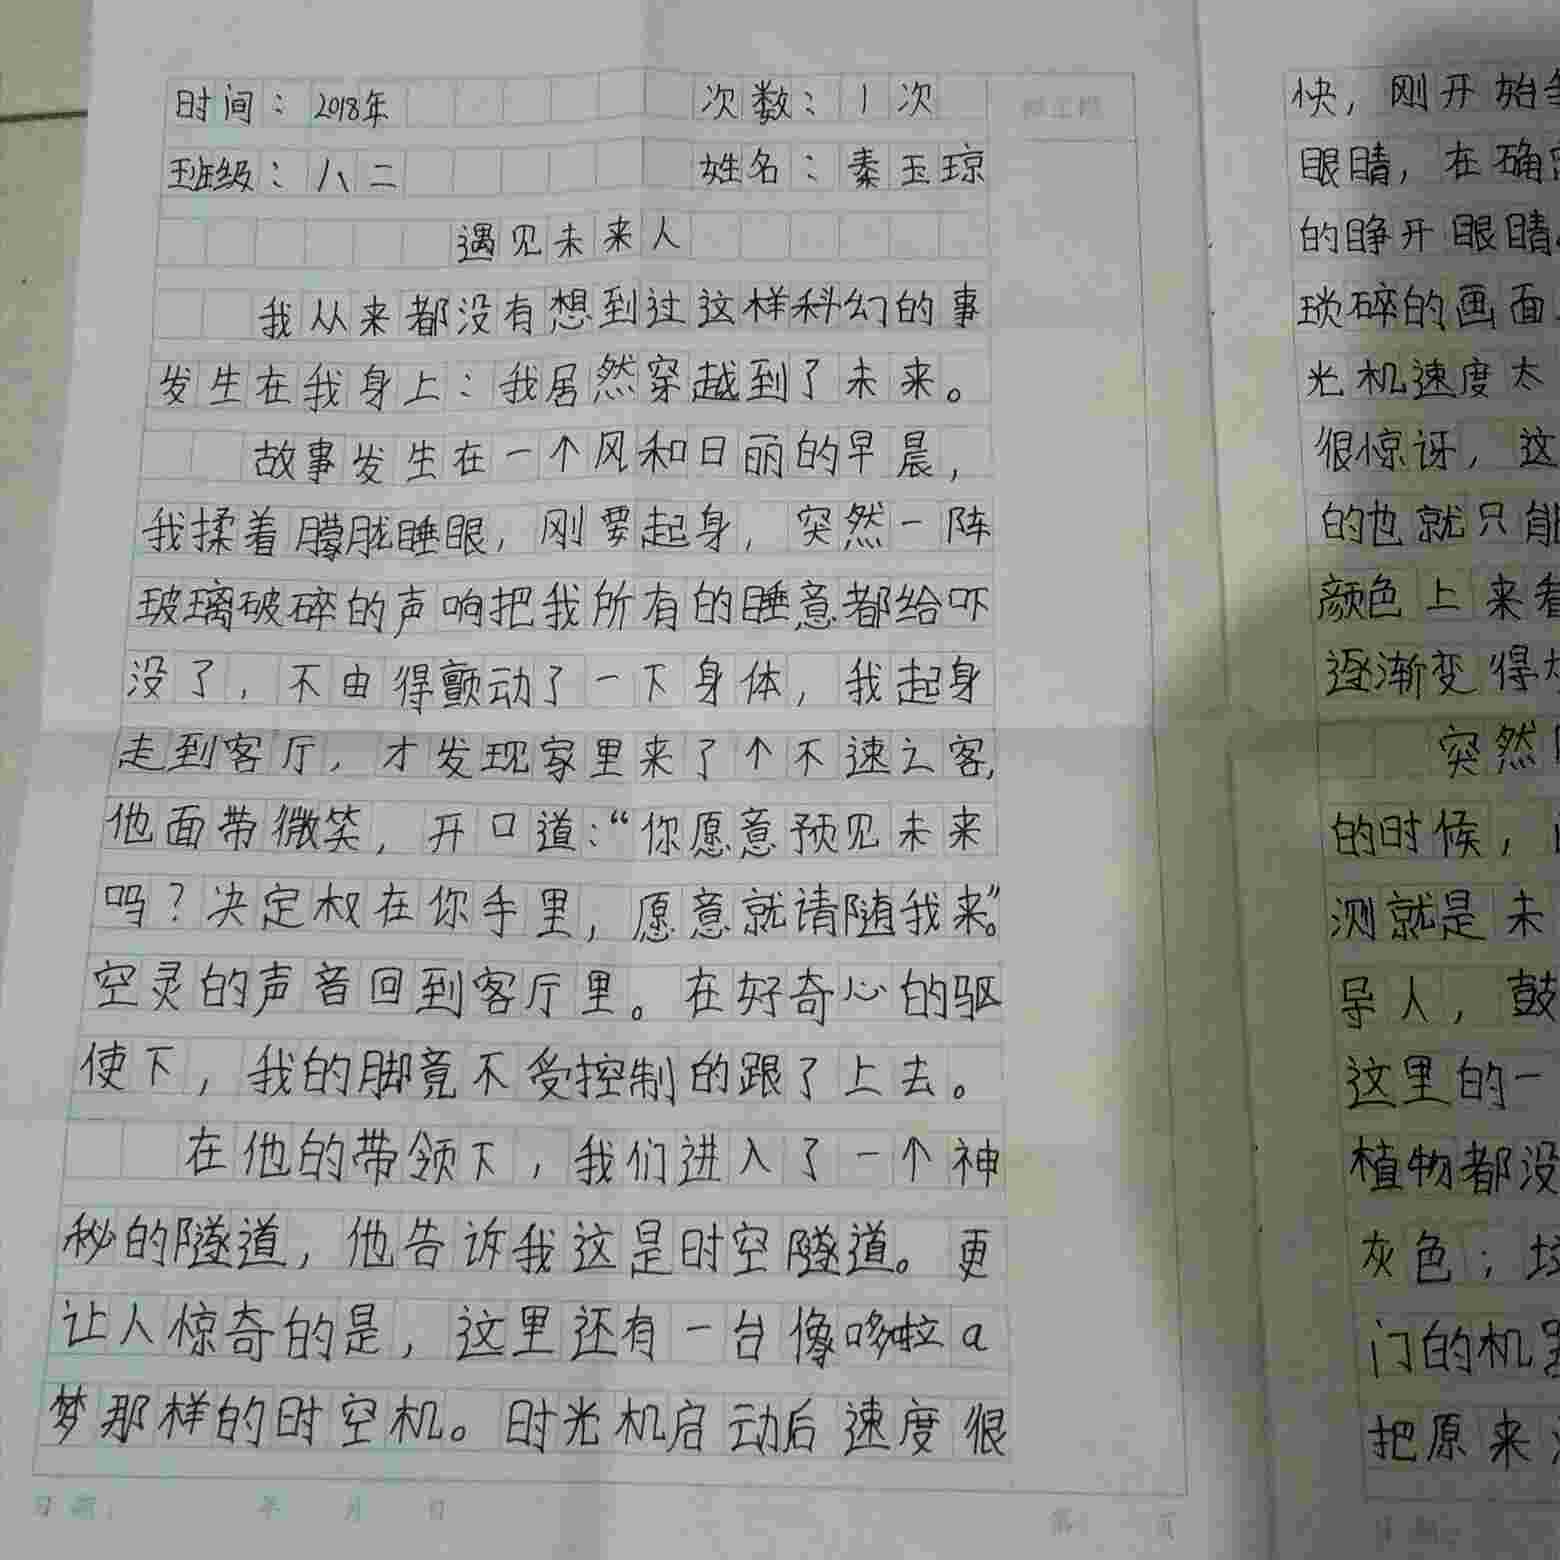 时间：2018年 次数：1次
班级：八二 姓名：秦玉琼
遇见未来人
我从来都没有想到过这样科幻的事
发生在我身上：我居然穿越到了未来。
故事发生在一个风和日丽的早晨，
我揉着朦胧睡眼，刚要起身，突然一阵
玻璃破碎的声响把我所有的睡意都给吓
没了，不由得颤动了一下身体，我起身
走到客厅，才发现家里来了个不速之客，
他面带微笑，开口道：“你愿意预见未来
吗？决定权在你手里，愿意就请随我来。”
空灵的声音回到客厅里。在好奇心的驱
使下，我的脚竟不受控制的跟了上去。
在他的带领下，我们进入了一个神
秘的隧道，他告诉我这是时空隧道。更
让人惊奇的是，这里还有一台像哆啦a
梦那样的时空机。时光机启动后速度很
日期： 年 月 日 第 页
快，刚开始
眼睛，在确
的睁开眼睛
琐碎的画面
光机速度太
很惊讶，这
的也就只能
颜色上来看
逐渐变得
突然
的时候，
测就是未
导人，鼓
这里的一
植物都没
灰色；
门的机器
把原来
日期：